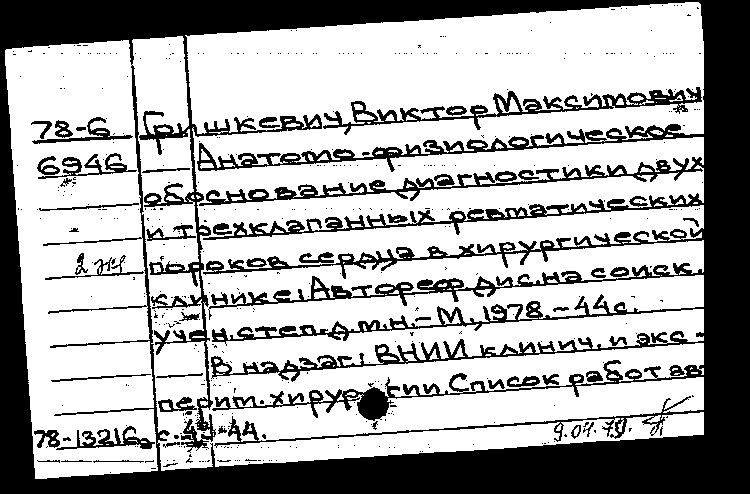 78-6 Гришкевич, Виктор Максимович
6946 Анатомо-физиологическое
обоснование диагностики двух
и трехклапанных ревматических
2 экз пороков сердца в хирургической
клинике: Автореф. дис. на соиск.
учен. степ. д.м.н. - М., 1978. - 44с.
В надзаг.: ВНИИ клинич. и экс-
перим. хирургии. Список работ авт
78-13216 с. -44.
9.04.79.